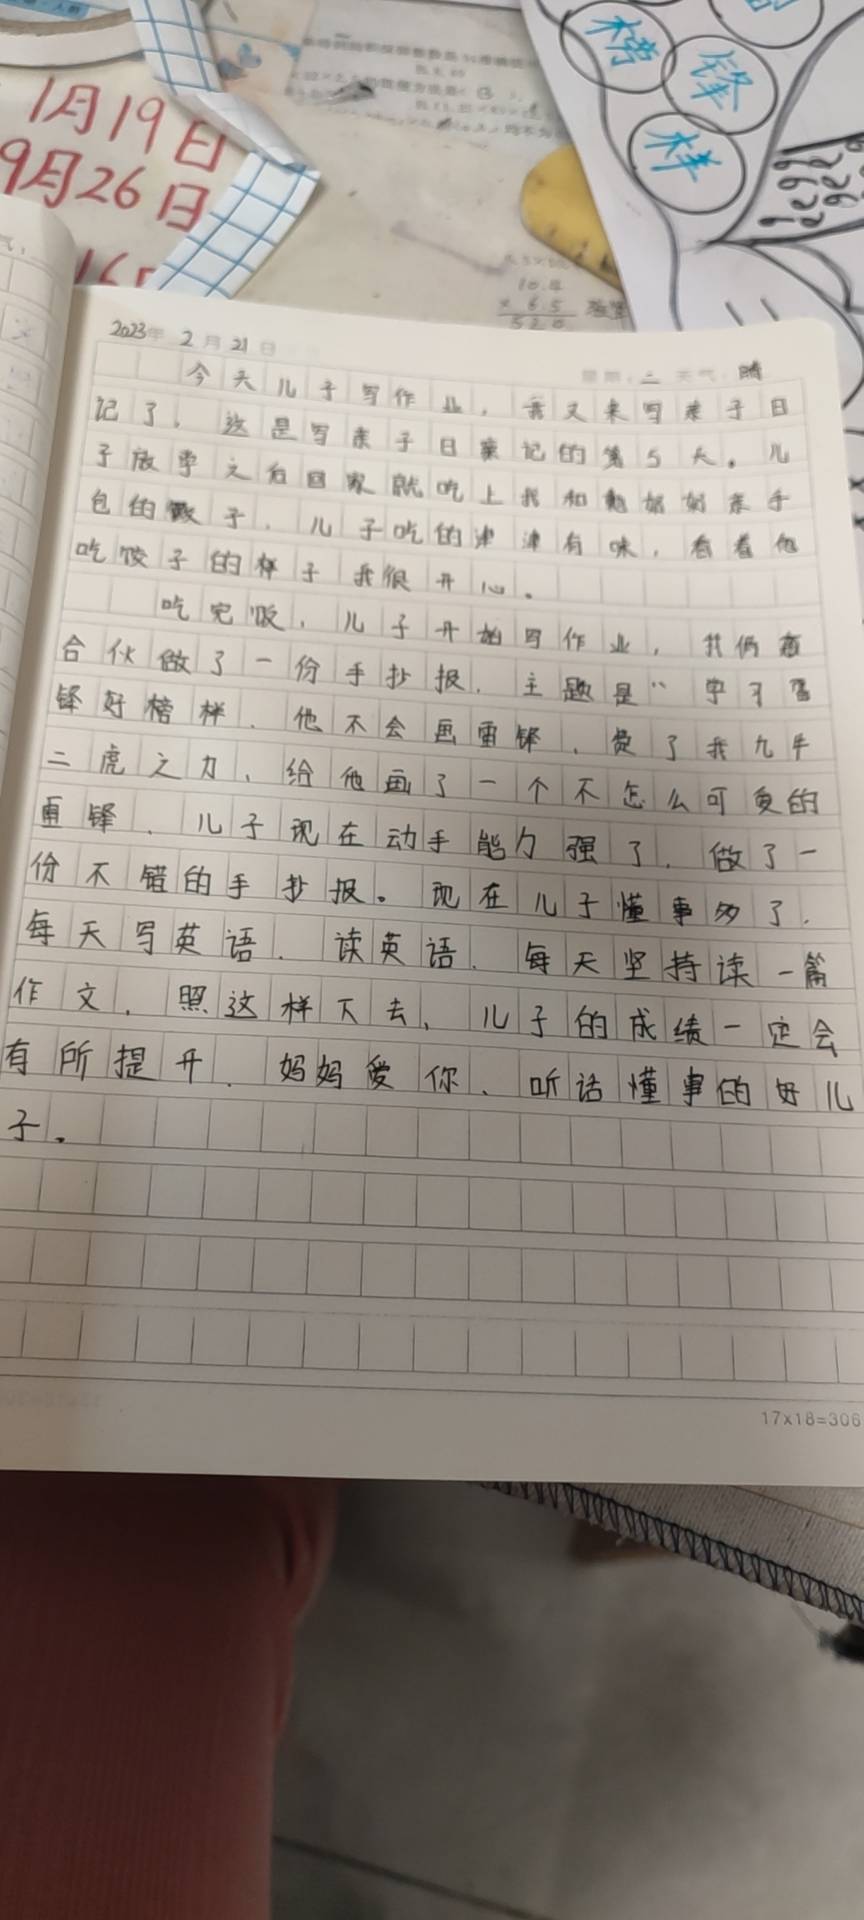 榜
锋
样
1月19日
9月26日
10.4
× 6.5
520
2023年 2月 21日
星期:二 天气:晴
今天儿子写作业,我又来写亲子日
记了,这是写亲子日亲记的第5天。儿
子放学之后回家就吃上我和她奶奶亲手
包的饺子,儿子吃的津津有味,看着他
吃饺子的样子我很开心。
吃完饭,儿子开始写作业,我俩商
合伙做了一份手抄报,主题是“学习雷
锋好榜样、他不会画雷锋,费了我九牛
二虎之力、给他画了一个不怎么可爱的
雷锋、儿子现在动手能力强了,做了一
份不错的手抄报。现在儿子懂事多了,
每天写英语、读英语、每天坚持读一篇
作文,照这样下去、儿子的成绩一定会
有所提升、妈妈爱你、听话懂事的好儿
子。
17x18=306